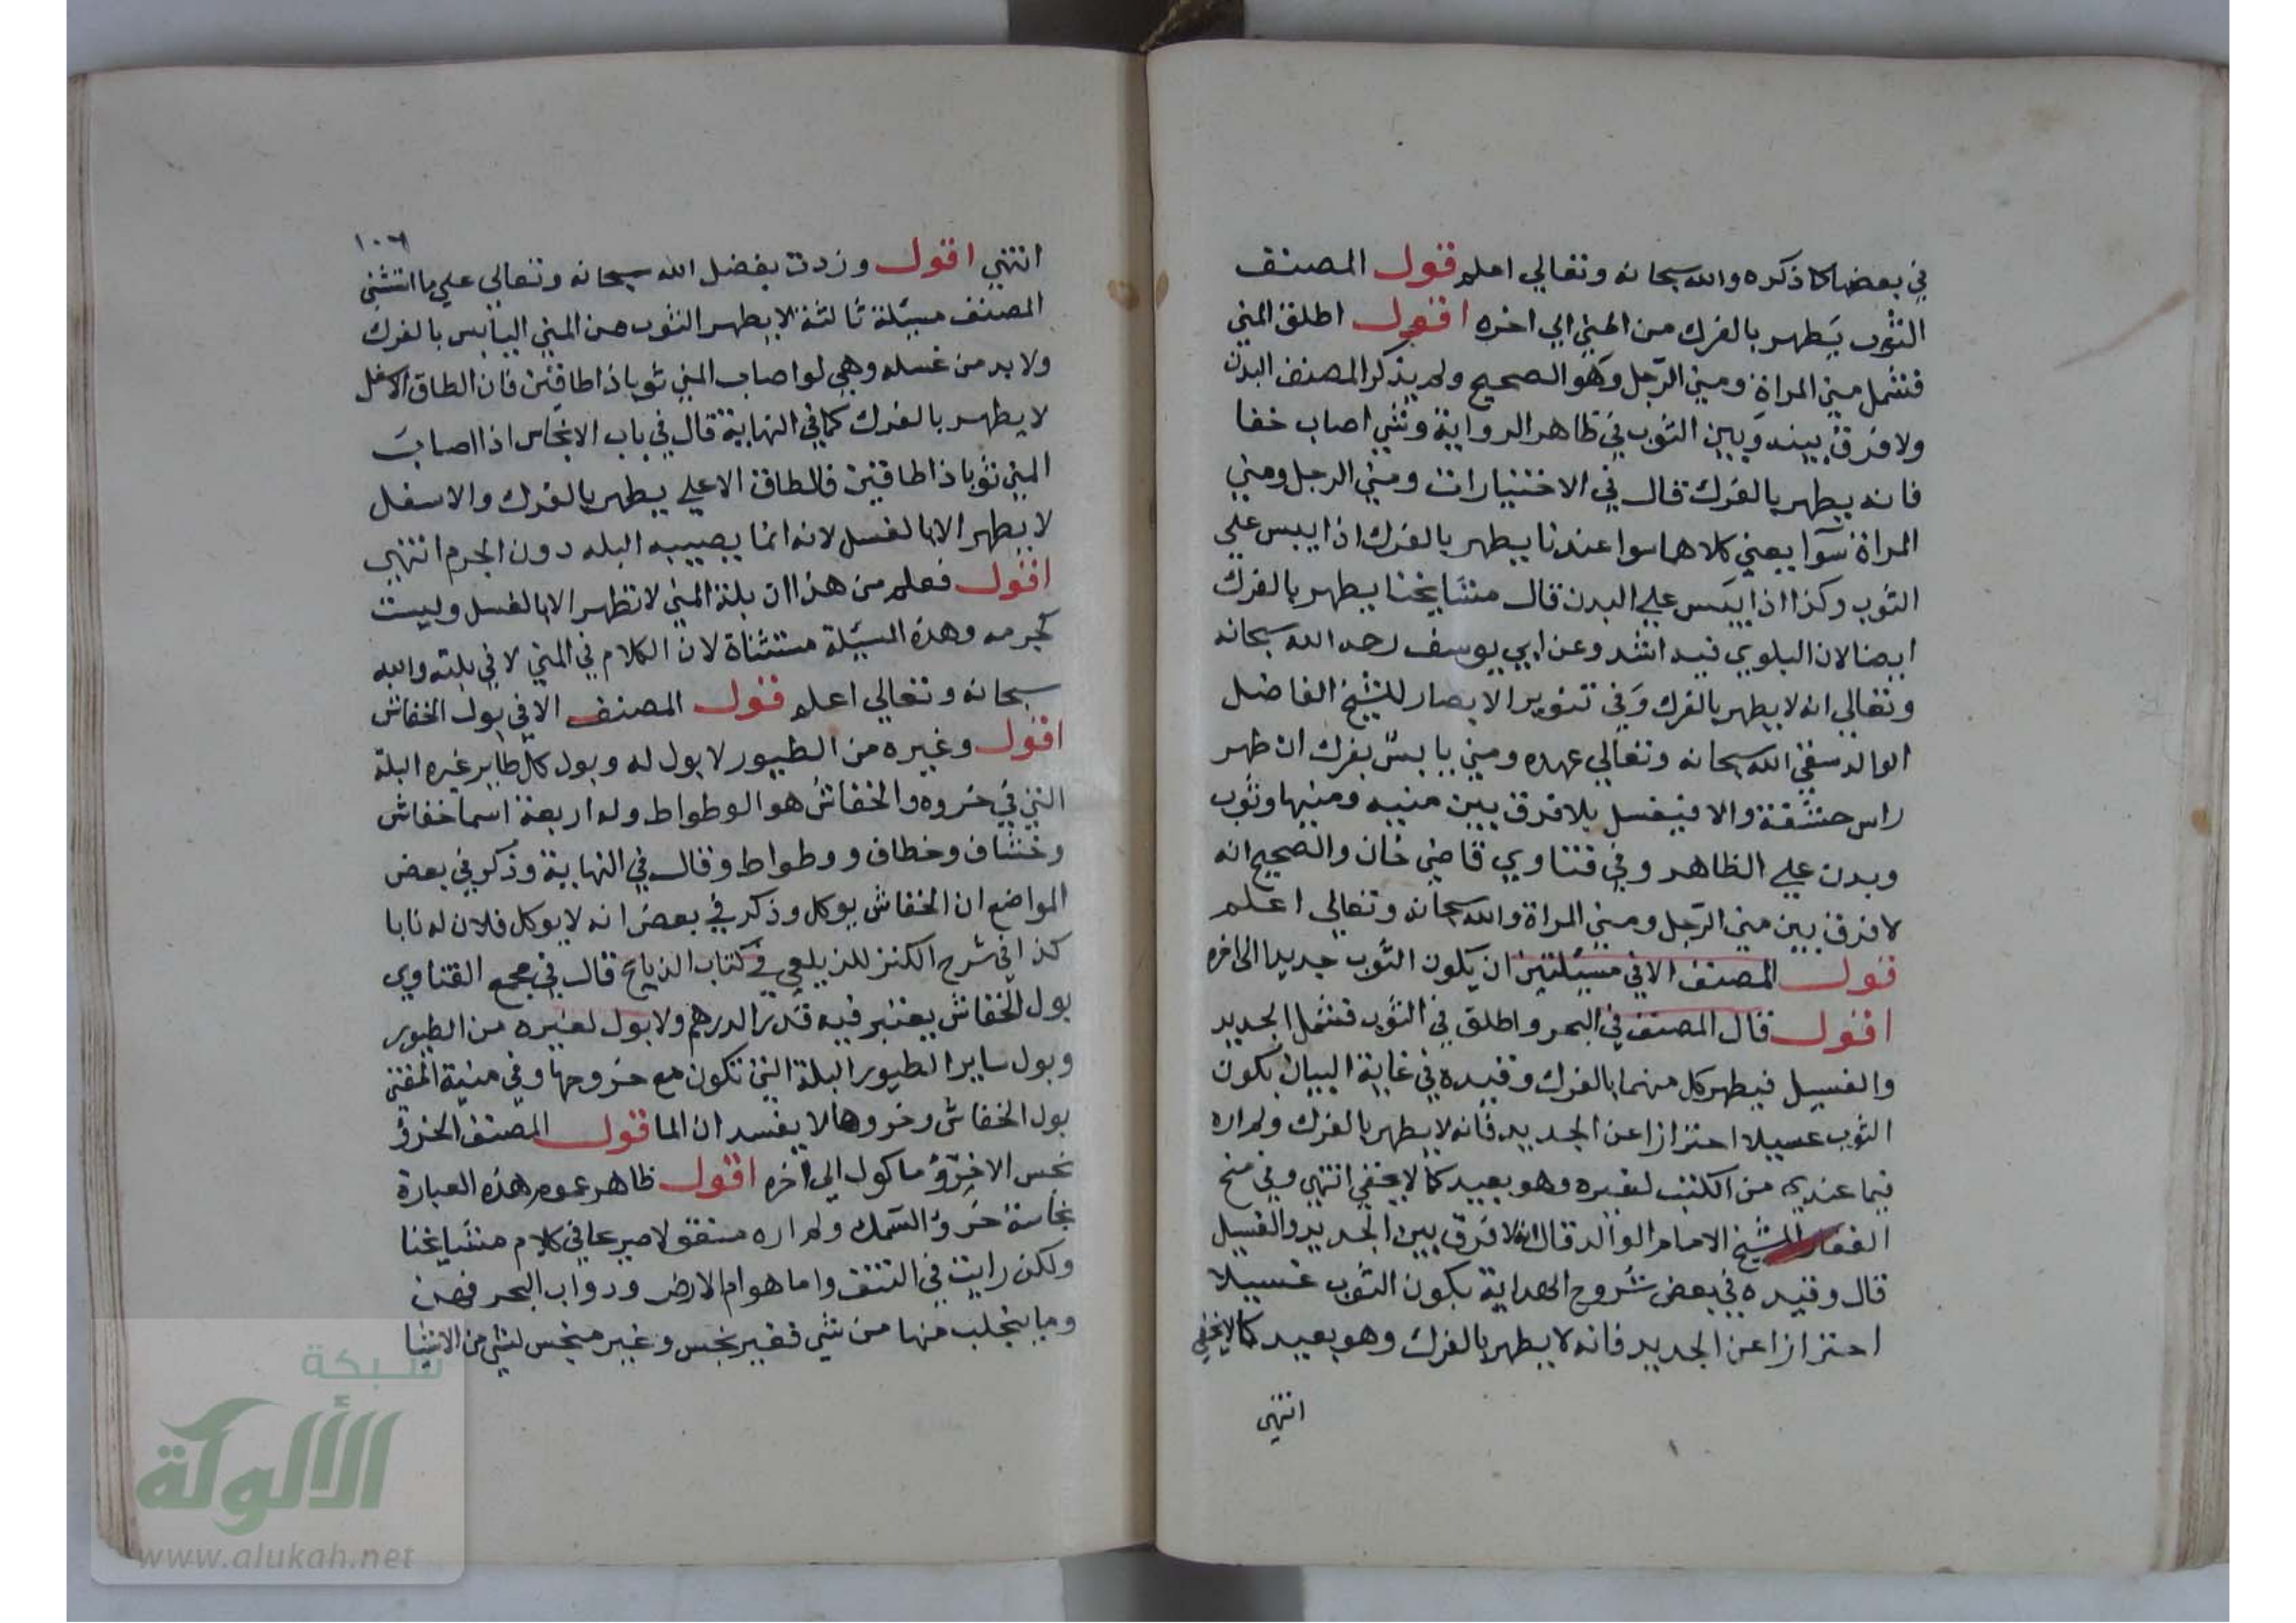 في بعضها كما ذكره والله سبحانه وتعالي اعلم قول المصنف
الثوب يطهر بالفرك من المني الي اخره اقول اطلق المني
فشمل مني المراة ومني الرجل وهو الصحيح ولم يذكر المصنف البدن
ولا فرق بينه وبين الثوب في ظاهر الرواية وشي اصاب خفا
فانه يطهر بالفرك قال في الاختيارات ومني الرجل ومني
المراة سوآ يعني كلاهما سوا عندنا يطهر بالفرك اذا يبس علي
الثوب وكذا اذا يبس علي البدن قال مشايخنا يطهر بالفرك
ايضا لان البلوي فيه اشد وعن ابي يوسف رحمه الله سبحانه
وتعالي انه لا يطهر بالفرك وفي تنوير الابصار للشيخ الفاضل
الوالد سقي الله سبحانه وتعالي عهده ومني يابس بفرك ان طهر
راس حشفة والا فيغسل بلا فرق بين منيه ومنيها وثوب
وبدن علي الظاهر وفي فتاوي قاضي خان والصحيح انه
لا فرق بين مني الرجل ومني المراة والله سبحانه وتعالي اعلم
قول المصنف الا في مسئلتين ان يكون الثوب جديدا الي اخره
اقول قال المصنف في البحر واطلق في الثوب فشمل الجديد
والغسيل فيطهر كل منهما بالفرك وقيده في غاية البيان بكون
الثوب غسيلا احترازا عن الجديد فانه لا يطهر بالفرك ولم اره
فيما عندي من الكتب لغيره وهو بعيد كما لا يخفي انتهي وفي منح
الغفار الشيخ الامام الوالد قال انه لا فرق بين الجديد والغسيل
قال وقيده في بعض شروح الهداية بكون الثوب غسيلا
احترازا عن الجديد فانه لا يطهر بالفرك وهو بعيد كما لا يخفي
انتهي
١٠٦
انتهي اقول وزدت بفضل الله سبحانه وتعالي علي ما استثني
المصنف مسئلة ثالثة لا يطهر الثوب من المني اليابس بالفرك
ولا بد من غسله وهي لو اصاب المني ثوبا ذا طاقين فان الطاق الاسفل
لا يطهر بالفرك كما في النهاية قال في باب الانجاس اذا اصاب
المني ثوبا ذا طاقين فالطاق الاعلي يطهر بالفرك والاسفل
لا يطهر الا بالغسل لانه انما يصيبه البله دون الجرم انتهي
اقول فعلم من هذا ان بلة المني لا تطهر الا بالغسل وليست
كجرمه وهذه المسئلة مستثناة لان الكلام في المني لا في بلته والله
سبحانه وتعالي اعلم قول المصنف الا في بول الخفاش
اقول وغيره من الطيور لا بول له وبول كل طاير غيره البلة
التي في خروه والخفاش هو الوطواط وله اربعة اسما خفاش
وخشاف وخطاف ووطواط وقال في النهاية وذكر في بعض
المواضع ان الخفاش يوكل وذكر في بعض انه لا يوكل فلان له نابا
كذا في شرح الكنز للزيلعي في كتاب الذبايح قال في مجمع الفتاوي
بول الخفاش يعتبر فيه قدر الدرهم ولا بول لغيره من الطيور
وبول ساير الطيور البلة التي تكون مع خروجها وفي منية المفتي
بول الخفاش وخروها لا يفسد ان الما قول المصنف الخرؤ
نجس الا خرؤ ماكول الي اخره اقول ظاهر عموم هذه العبارة
نجاسة خرؤ السمك ولم اره منقولا صريحا في كلام مشايخنا
ولكن رايت في النتف واما هوام الارض ودواب البحر فهن
وما يتحلب منها من شي فغير نجس وغير منجس لشي من الاشيا
شبكة
الألوكة
www.alukah.net